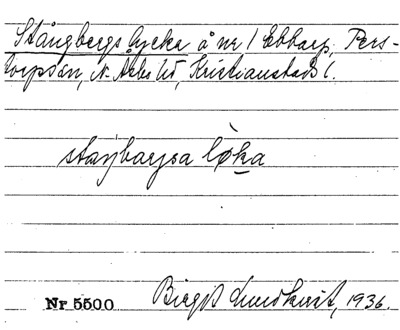 Stångbergs lycka å nr 1 Ebbarp, Pers-
torps sn, N. Åsbo hd, Kristianstads l.
staŋbarjsa løka
Nr 5500 Birgit Lundkvist, 1936.